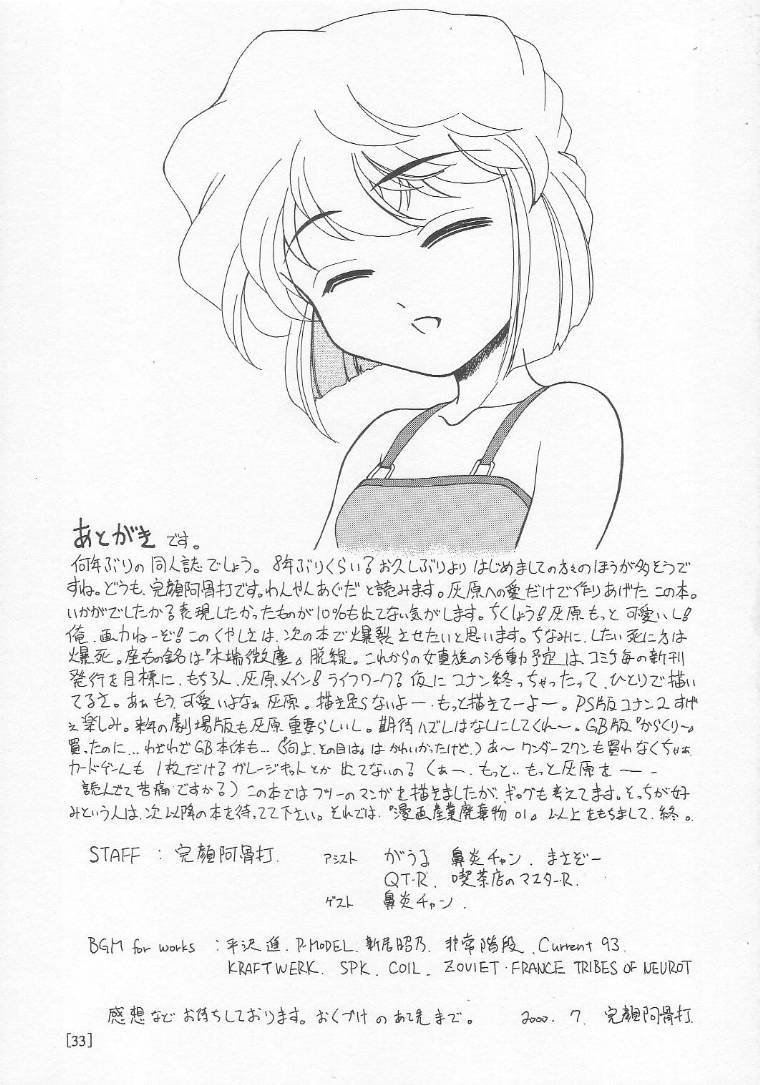 あとがきです。
何年ぶりの同人誌でしょう。8年ぶりくらい?お久しぶりより はじめましての方々のほうが多そうで
すね。どうも、完顔阿骨打です。わんやんあぐだと読みます。灰原への愛だけで作りあげた この本。
いかがでしたか?表現したかったものが10%も出てない気がします。ちくしょう!灰原もっと 可愛いし!
俺、画力ねーぞ!このくやしさは、次の本で爆裂させたいと思います。ちなみに、したい死に方は
爆死。座右の銘は『木端微塵』脱線。これからの女真族の活動予定は、コミケ毎の新刊
発行を目標に、もちろん、灰原メイン!ライフワーク?仮に コナン終っちゃったって、ひとりで描い
てるさ。あぁもう、可愛いよなぁ灰原。描き足らないよー、もっと描きてーよー。PS版コナン2 すげ
ぇ楽しみ。来年の劇場版も灰原重要らしいし。期待ハズレはなしにしてくれ〜。GB版『からくり〜』
買ったのに…わざわざGB本体も…(『何よ、その目は』は かわいかったけど。)あ〜 ワンダースワンも買わなくちゃぁ
カードゲームも 1枚だけ?ガレージキットとか 出てないの?くぁー、もっと、もっと灰原をーー
読んでて苦痛ですか?)この本ではフツーのマンガを描きましたが、ギャグも考えてます。そっちが好
みという人は、次以降の本を待ってて下さい。それでは、『漫画産業廃棄物01』以上をもちまして、終。
STAFF : 完顔阿骨打.
アシスト がうる 鼻炎チャン、まさぞー
QT-R、喫茶店のマスターR.
ゲスト 鼻炎チャン.
BGM for works : 平沢進、P-MODEL、新居昭乃、非常階段、Current 93、
KRAFTWERK. SPK. COIL. ZOVIET・FRANCE TRIBES OF NEUROT
感想など お待ちしております。おくづけの あて先まで。 2000. 7. 完顔阿骨打.
[33]